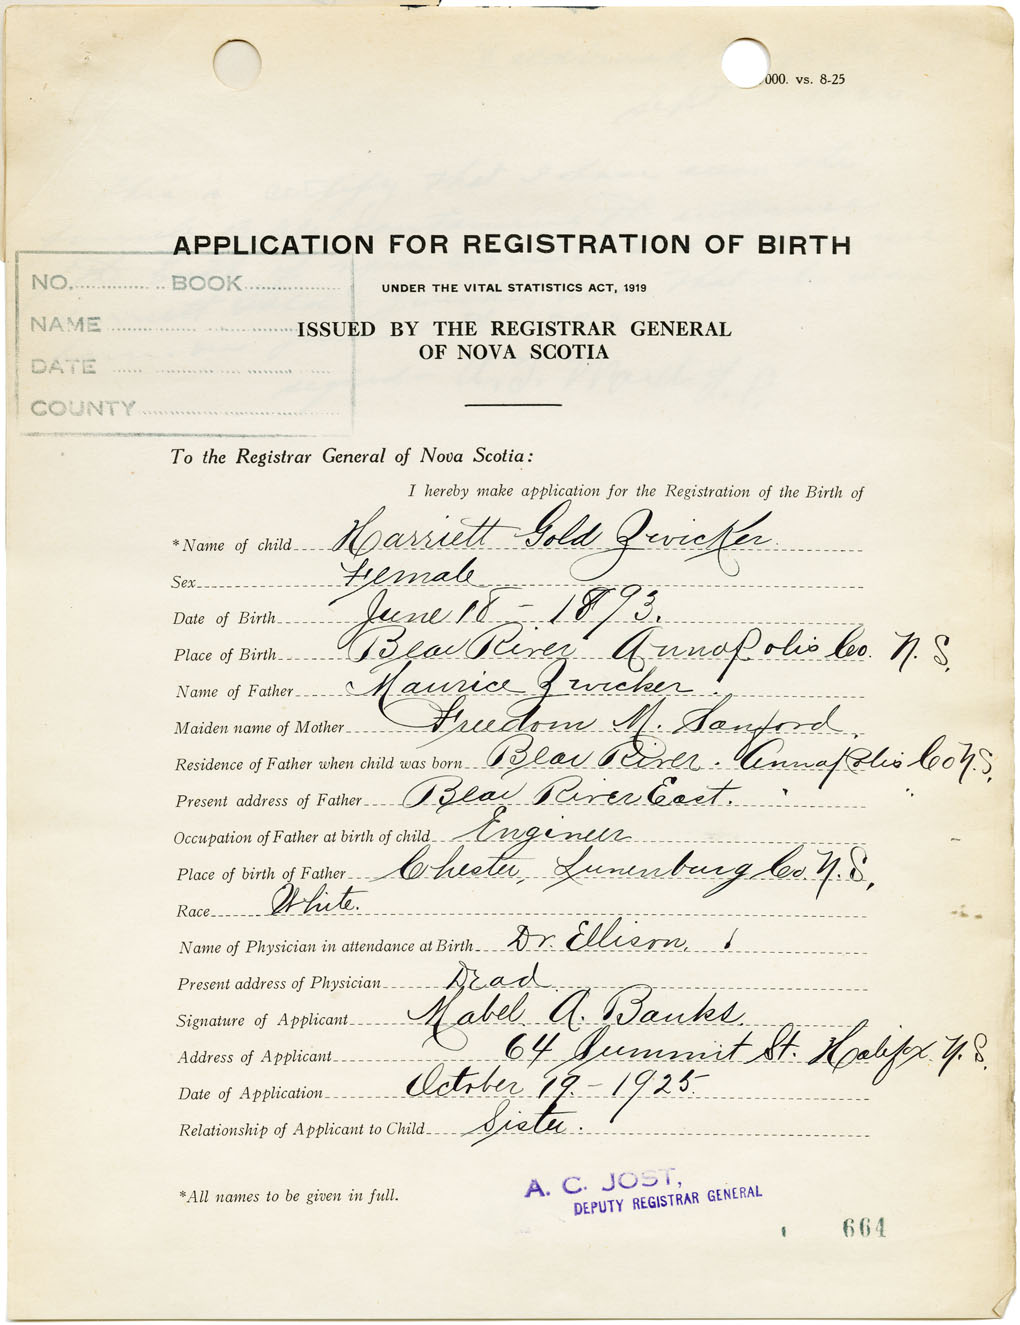 000. vs. 8-25
APPLICATION FOR REGISTRATION OF BIRTH
UNDER THE VITAL STATISTICS ACT, 1919
ISSUED BY THE REGISTRAR GENERAL
OF NOVA SCOTIA
NO. BOOK
NAME
DATE
COUNTY
To the Registrar General of Nova Scotia:
I hereby make application for the Registration of the Birth of
*Name of child Harriett Gold Zwicker.
Sex Female
Date of Birth June 18 - 1893.
Place of Birth Bear River Annapolis Co. N.S.
Name of Father Maurice Zwicker.
Maiden name of Mother Freedom M. Sanford.
Residence of Father when child was born Bear River. Annapolis Co N.S.
Present address of Father Bear River East. " "
Occupation of Father at birth of child Engineer
Place of birth of Father Chester, Lunenburg Co. N.S.
Race White.
Name of Physician in attendance at Birth Dr. Ellison.
Present address of Physician Dead
Signature of Applicant Mabel A. Banks.
Address of Applicant 64 Summit St. Halifax N.S.
Date of Application October 19 - 1925.
Relationship of Applicant to Child Sister.
*All names to be given in full.
A. C. JOST,
DEPUTY REGISTRAR GENERAL
664